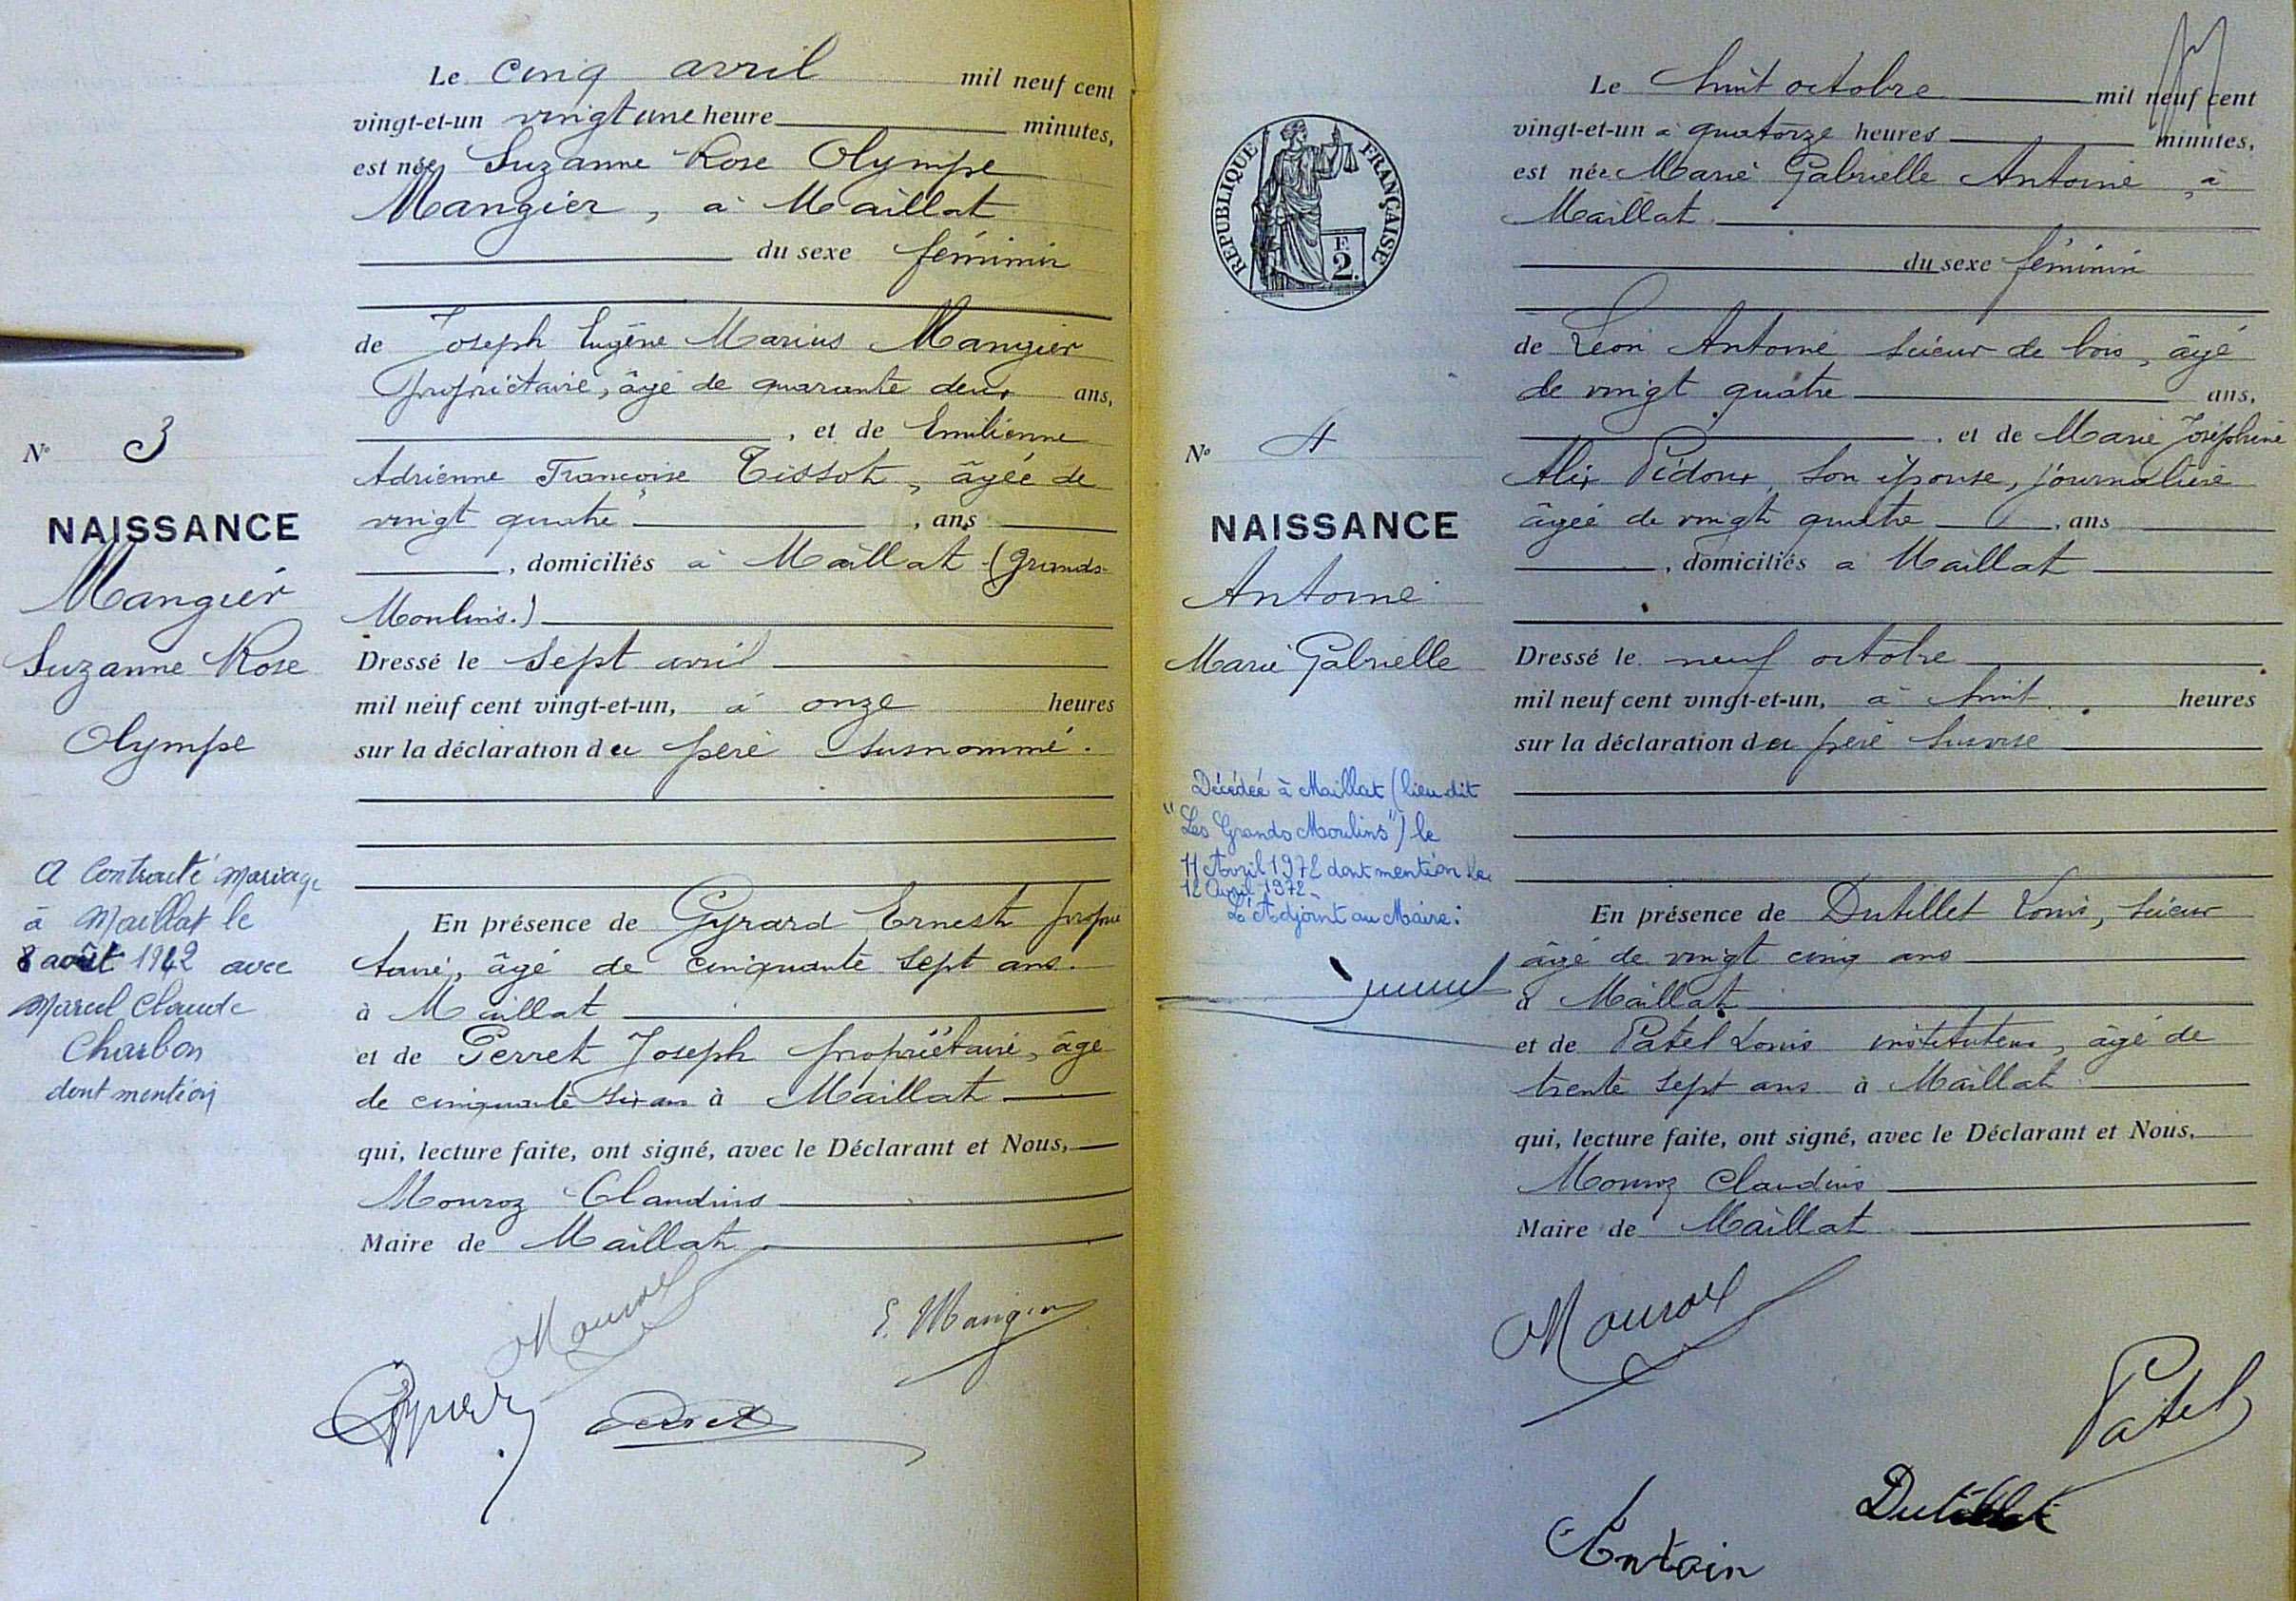 Le cinq avril mil neuf cent
vingt-et-un vingt une heure minutes,
est née Suzanne Rose Olympe
Mangier, à Maillat
du sexe féminin
de Joseph Eugène Marius Mangier
propriétaire, âgé de quarante deux ans,
, et de Emilienne
Adrienne Françoise Tissot, âgée de
vingt quatre , ans
, domiciliés à Maillat (Grands-
Moulins.)
Dressé le sept avril
mil neuf cent vingt-et-un, à onze heures
sur la déclaration du père susnommé.
En présence de Gyrard Ernest proprié
taire, âgé de cinquante sept ans.
à Maillat
et de Perret Joseph propriétaire, âgé
de cinquante six ans à Maillat
qui, lecture faite, ont signé, avec le Déclarant et Nous,
Mouroz Claudius
Maire de Maillat
Mouroz
E. Mangier
Perret
N° 3
NAISSANCE
Mangier
Suzanne Rose
Olympe
A contracté mariage
à Maillat le
8 août 1942 avec
Marcel Claude
Charbon
dont mention
RÉPUBLIQUE FRANÇAISE
F.
2.
Le huit octobre mil neuf cent
vingt-et-un à quatorze heures minutes,
est née Marie Gabrielle Antoine, à
Maillat
du sexe féminin
de Léon Antoine scieur de bois, âgé
de vingt quatre ans,
, et de Marie Joséphine
Alix Pidoux, son épouse, journalière
âgée de vingt quatre , ans
, domiciliés à Maillat
Dressé le neuf octobre
mil neuf cent vingt-et-un, à huit heures
sur la déclaration du père
En présence de Dutillet Louis, scieur
âgé de vingt cinq ans
à Maillat
et de Patel Louis instituteur, âgé de
trente sept ans à Maillat
qui, lecture faite, ont signé, avec le Déclarant et Nous,
Mouroz Claudius
Maire de Maillat
Mouroz
Patel
Dutillet
Antoin
N° 4
NAISSANCE
Antoine
Marie Gabrielle
Décédée à Maillat (lieu dit
"Les Grands Moulins") le
11 Avril 1972 dont mention le
12 Avril 1972.
L'Adjoint au Maire: